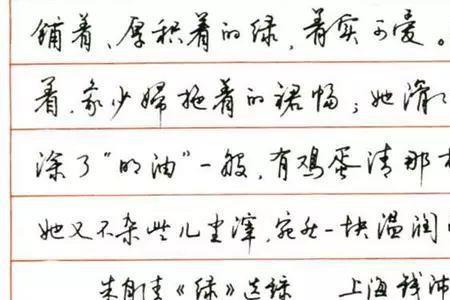 铺着、厚积着的绿，着实可爱。
着，象少妇拖着的裙幅；她滑
涂了“明油”一般，有鸡蛋清那
她又不杂些儿尘滓，宛然一块温润
朱自清《绿》选录 上海钱沛